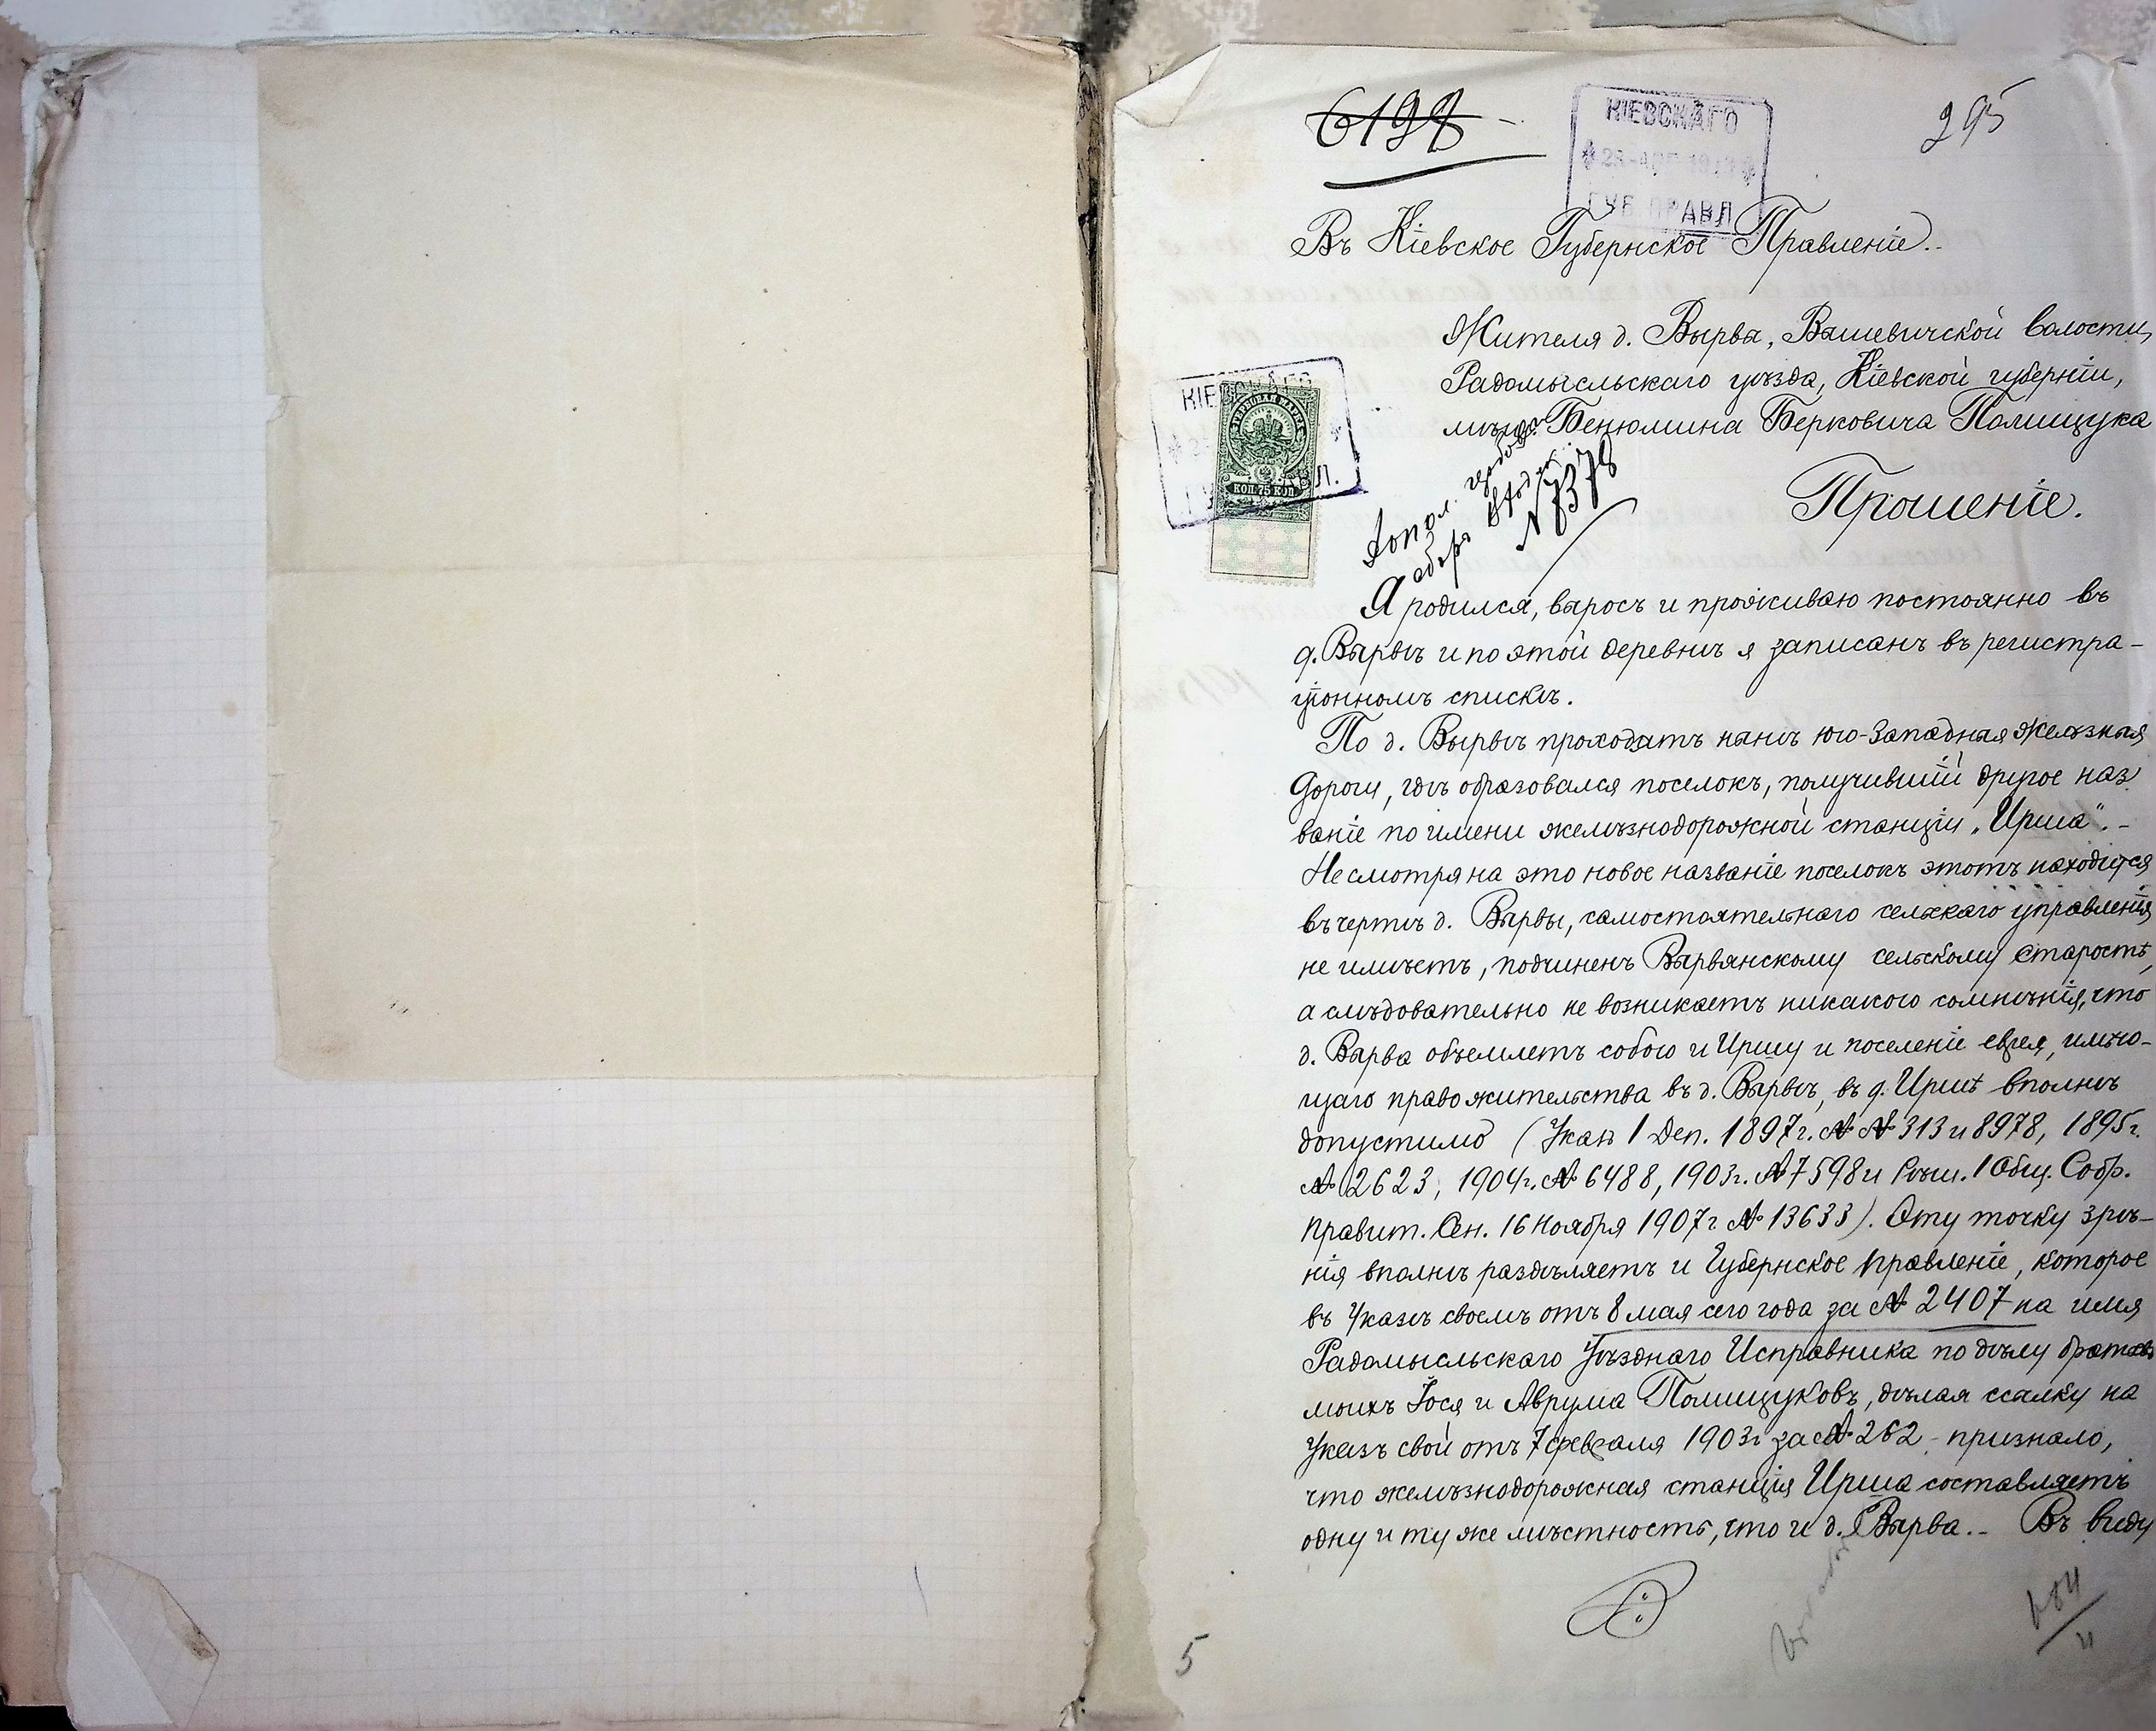 6198
КІЕВСКАГО
ГУБ. ПРАВЛ
295
Въ Кіевское Губернское Правленіе.
Жителя д. Вырва, Вышевичской волости,
Радомысльскаго уѣзда, Кіевской губерніи,
мѣщ. Бенюмина Берковича Полищука
КОП 75 КОП
Допол.
сборъ
№ 7378
Прошеніе.
Я родился, выросъ и проживаю постоянно въ
д. Вырвѣ и по этой деревнѣ я записанъ въ регистра-
ціонномъ спискѣ.
По д. Вырвѣ проходитъ нынѣ Юго-Западная желѣзная
дорога, гдѣ образовался поселокъ, получившій другое наз
ваніе по имени желѣзнодорожной станціи „Ирша“.
Несмотря на это новое названіе поселокъ этотъ находится
въ чертѣ д. Вырвы, самостоятельнаго сельскаго управленія
не имѣетъ, подчиненъ Вырвянскому сельскому старостѣ,
а слѣдовательно не возникаетъ никакого сомнѣнія, что
д. Вырва объемлетъ собою и Иршу и поселеніе еврея, имѣю-
щаго право жительства въ д. Вырвѣ, въ д. Иршѣ вполнѣ
допустимо (Указ 1 Деп. 1897 г. №№ 313 и 8978, 1895 г.
№ 2623, 1904 г. № 6488, 1903 г. № 7598 и Рѣш. 1 Общ. Собр.
Правит. Сен. 16 Ноября 1907 г № 13633). Эту точку зрѣ-
нія вполнѣ раздѣляетъ и Губернское Правленіе, которое
въ Указѣ своемъ отъ 8 мая сего года за № 2407 на имя
Радомысльскаго Уѣзднаго Исправника по дѣлу братьевъ
моихъ Іося и Аврума Полищуковъ, дѣлая ссылку на
Указъ свой отъ 7 февраля 1903 г за № 262 - признало,
что желѣзнодорожная станція Ирша составляетъ
одну и ту же мѣстность, что и д. Вырва. Въ виду
5